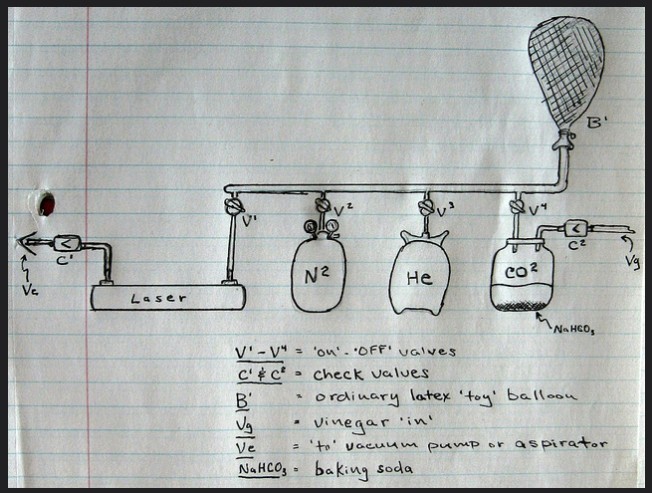 B'
V' V² V³ V⁴
C' C²
Ve Laser N² He CO² Vg
NaHCO₃
V' - V⁴ = 'on' - 'OFF' valves
C' & C² = check valves
B' = ordinary latex 'toy' balloon
Vg = vinegar 'in'
Ve = 'to' vacuum pump or aspirator
NaHCO₃ = baking soda